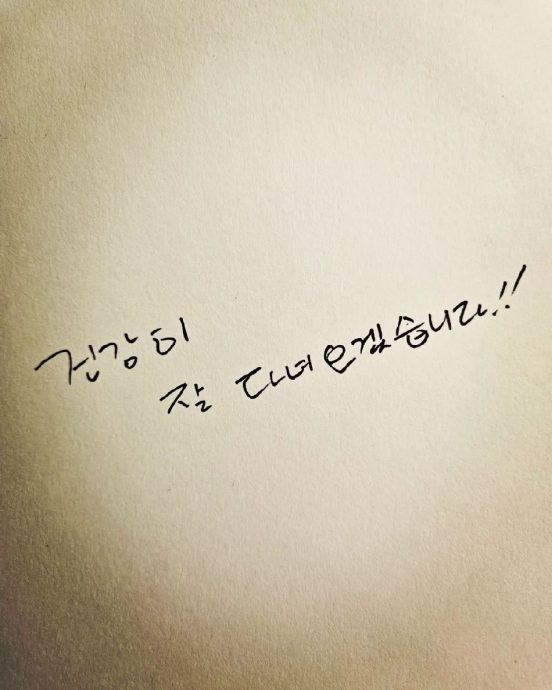 건강히
잘 다녀오겠습니다!!